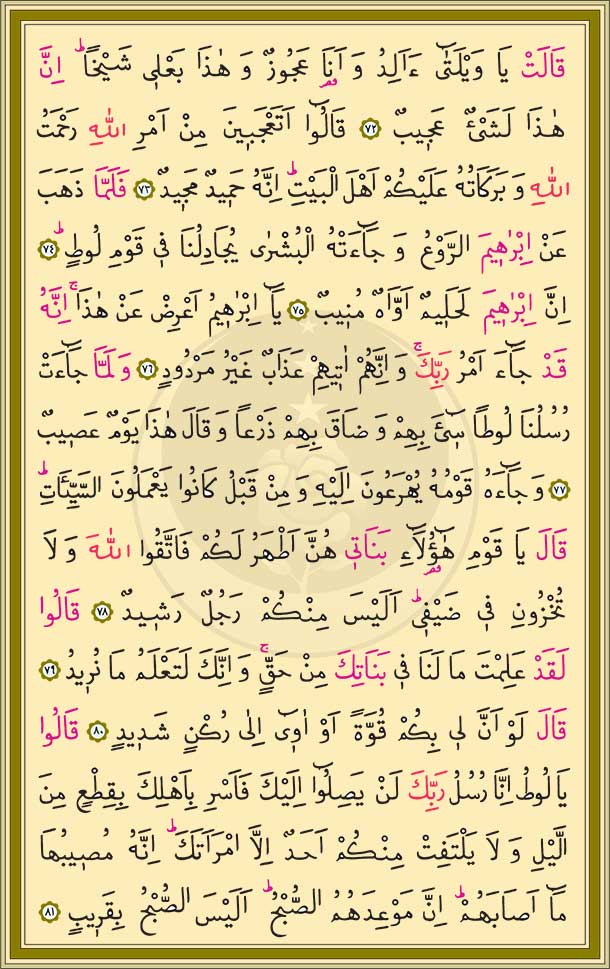 قَالَتْ يَا وَيْلَتٰٓى ءَاَلِدُ وَ اَنَا۬ عَجُوزٌ وَ هٰذَا بَعْلٖى شَيْخًاۜ اِنَّ
هٰذَا لَشَىْءٌ عَجٖيبٌ ﴿٧٢﴾ قَالُٓوا اَتَعْجَبٖينَ مِنْ اَمْرِ اللّٰهِ رَحْمَتُ
اللّٰهِ وَ بَرَكَاتُهُ عَلَيْكُمْ اَهْلَ الْبَيْتِۜ اِنَّهُ حَمٖيدٌ مَجٖيدٌ ﴿٧٣﴾ فَلَمَّا ذَهَبَ
عَنْ اِبْرٰهٖيمَ الرَّوْعُ وَ جَٓاءَتْهُ الْبُشْرٰى يُجَادِلُنَا فٖى قَوْمِ لُوطٍۜ ﴿٧٤﴾
اِنَّ اِبْرٰهٖيمَ لَحَلٖيمٌ اَوَّاهٌ مُنٖيبٌ ﴿٧٥﴾ يَٓا اِبْرٰهٖيمُ اَعْرِضْ عَنْ هٰذَاۚ اِنَّهُ
قَدْ جَٓاءَ اَمْرُ رَبِّكَۚ وَ اِنَّهُمْ اٰتٖيهِمْ عَذَابٌ غَيْرُ مَرْدُودٍ ﴿٧٦﴾ وَ لَمَّا جَٓاءَتْ
رُسُلُنَا لُوطًا سٖٓىءَ بِهِمْ وَ ضَاقَ بِهِمْ ذَرْعًا وَ قَالَ هٰذَا يَوْمٌ عَصٖيبٌ
﴿٧٧﴾ وَ جَٓاءَهُ قَوْمُهُ يُهْرَعُونَ اِلَيْهِ وَ مِنْ قَبْلُ كَانُوا يَعْمَلُونَ السَّيِّـَٔاتِۜ
قَالَ يَا قَوْمِ هٰٓؤُ۬لَٓاءِ بَنَاتٖى هُنَّ اَطْهَرُ لَكُمْ فَاتَّقُوا اللّٰهَ وَ لَا
تُخْزُونِ فٖى ضَيْفٖىۜ اَلَيْسَ مِنْكُمْ رَجُلٌ رَشٖيدٌ ﴿٧٨﴾ قَالُوا
لَقَدْ عَلِمْتَ مَا لَنَا فٖى بَنَاتِكَ مِنْ حَقٍّۚ وَ اِنَّكَ لَتَعْلَمُ مَا نُرٖيدُ ﴿٧٩﴾
قَالَ لَوْ اَنَّ لٖى بِكُمْ قُوَّةً اَوْ اٰوٖٓى اِلٰى رُكْنٍ شَدٖيدٍ ﴿٨٠﴾ قَالُوا
يَا لُوطُ اِنَّا رُسُلُ رَبِّكَ لَنْ يَصِلُٓوا اِلَيْكَ فَاَسْرِ بِاَهْلِكَ بِقِطْعٍ مِنَ
الَّيْلِ وَ لَا يَلْتَفِتْ مِنْكُمْ اَحَدٌ اِلَّا امْرَاَتَكَۜ اِنَّهُ مُصٖيبُهَا
مَٓا اَصَابَهُمْۜ اِنَّ مَوْعِدَهُمُ الصُّبْحُۜ اَلَيْسَ الصُّبْحُ بِقَرٖيبٍ ﴿٨١﴾